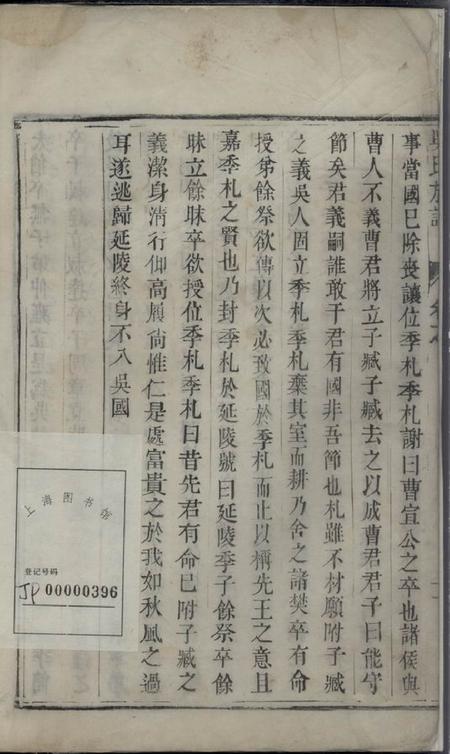 吳氏族譜
事當國已除喪讓位季札季札謝曰曹宣公之卒也諸侯與
曹人不義曹君將立子臧子臧去之以成曹君君子曰能守
節矣君義嗣誰敢干君有國非吾節也札雖不材願附子臧
之義吳人固立季札季札棄其室而耕乃舍之諸樊卒有命
授弟餘祭欲傳以次必致國於季札而止以稱先王之意且
嘉季札之賢也乃封季札於延陵號曰延陵季子餘祭卒餘
昧立餘昧卒欲授位季札季札曰昔先君有命已附子臧之
義潔身消行仰高履尚惟仁是處富貴之於我如秋風之過
耳遂逃歸延陵終身不入吳國
上海图书馆
登记号码
JP 00000396